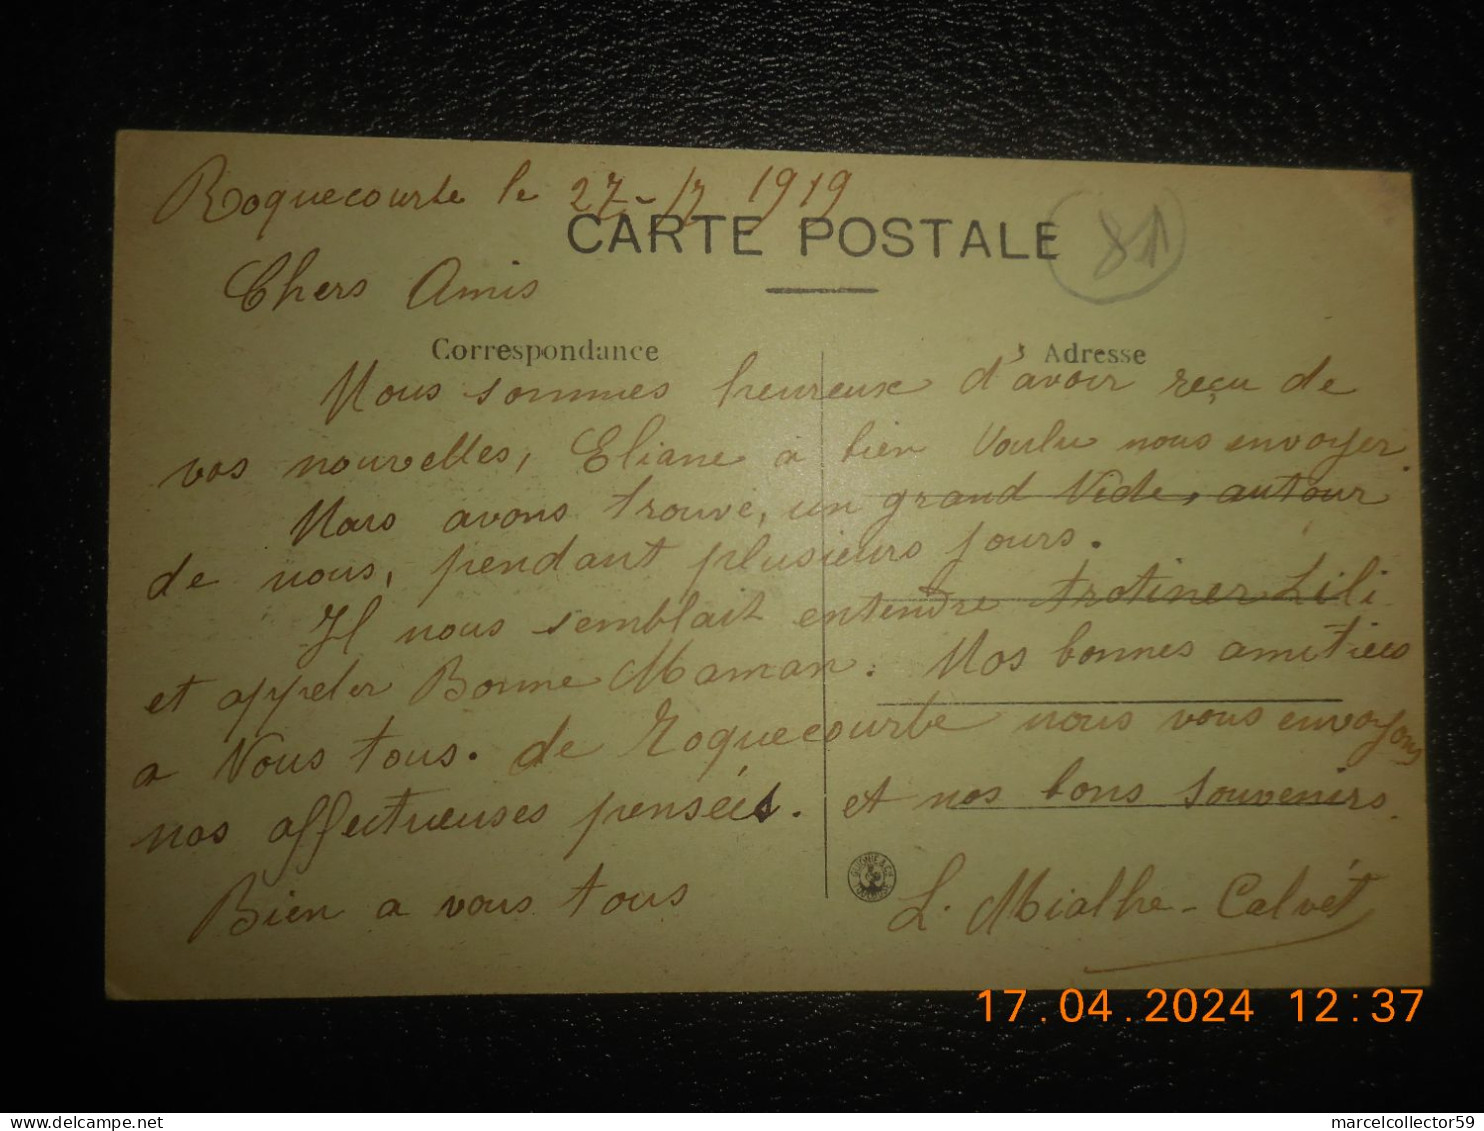 Roquecourbe le 27-17 1919
CARTE POSTALE
81
Chers Amis
Correspondance
Adresse
Nous sommes heureux d'avoir reçu de
vos nouvelles, Eliane a bien Voulu nous envoyer.
Nous avons trouvé, un grand Vide, autour
de nous, pendant plusieurs jours.
Il nous semblait entendre trotiner Lili
et appeler Bonne Maman. Nos bonnes amitiées
a Vous tous. de Roquecourbe nous vous envoyons
nos affectueuses pensées. et nos bons souvenirs.
Bien a vous tous
L. Mialhe-Calvét
17.04.2024 12:37
marcelcollector59